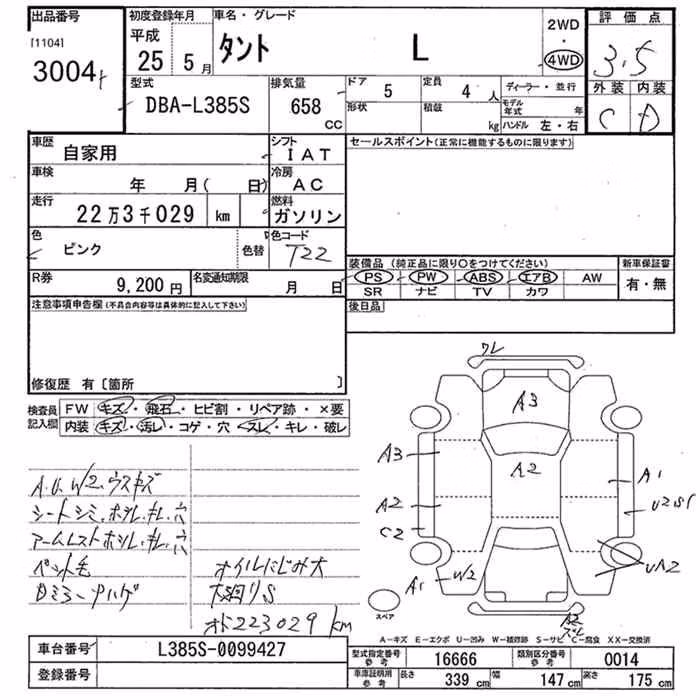 出品番号 初度登録年月 車名・グレード 2WD 評価点
[1104] 平成 ・
3004 25 5月 タント L 4WD 3.5
型式 排気量 ドア 5 定員 4人 ディーラー・並行 外装 内装
DBA-L385S 658 CC 形状 積載 kg モデル年式 年 C D
ハンドル 左・右
車歴 自家用 シフト IAT セールスポイント(正常に機能するものに限ります)
車検 年 月( 日) 冷房 AC
走行 22万3千029 km 燃料 ガソリン
色 ピンク 色替 色コード T22
装備品 (純正品に限り○をつけてください) 新車保証書
R券 9,200円 名変通知期限 月 日 PS PW ABS エアB AW 有・無
SR ナビ TV カワ
注意事項申告欄(不具合内容等は具体的に記入して下さい) 後日品
修復歴 有 [箇所 ]
検査員 FW キズ・飛石・ヒビ割・リペア跡・×要
記入欄 内装 キズ・汚レ・コゲ・穴・スレ・キレ・破レ
ワレ
A3
A3 A2 A1
A2 U2S1
C2
A1 W2 UA2
スペア A2
ズレ
A.U.W2.ウスキズ
シートシミ.ホシレ.キレ.穴
アームレストホシレ.キレ.穴
ペット毛 オイルにじみ大
Dミラーハゲ 大廻りS
オド223029 km
A-キズ E-エクボ U-凹み W-補修跡 S-サビ C-腐食 XX-交換済
車台番号 L385S-0099427 型式指定番号 参考 16666 類別区分番号 参考 0014
登録番号 車庫証明用 参考 長さ 339 cm 幅 147 cm 高さ 175 cm